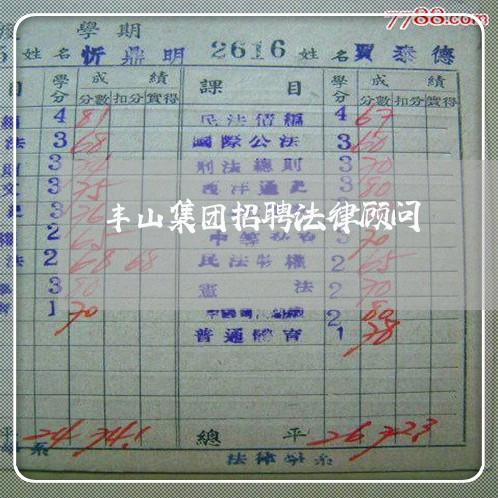 7788.com
學期
姓名 忻鼎明 2616 姓名 賈泰德
目 學分 成績 課目 學分 成績
分數 扣分 實得 分數 扣分 實得
4 81 民法債編 4 67
法 3 68 國際公法 3 60
3 刑法總則 3 70
3 75 西洋通史 3 80
3 76
丰山集团招聘法律顾问
2 65 3 70
法 2 68 68 民法物權 2 65
3 80 憲法 2 70
1 70 2 80
普通體育 1 78
平 24 74.1 總平 26 72.3
系 法律學系